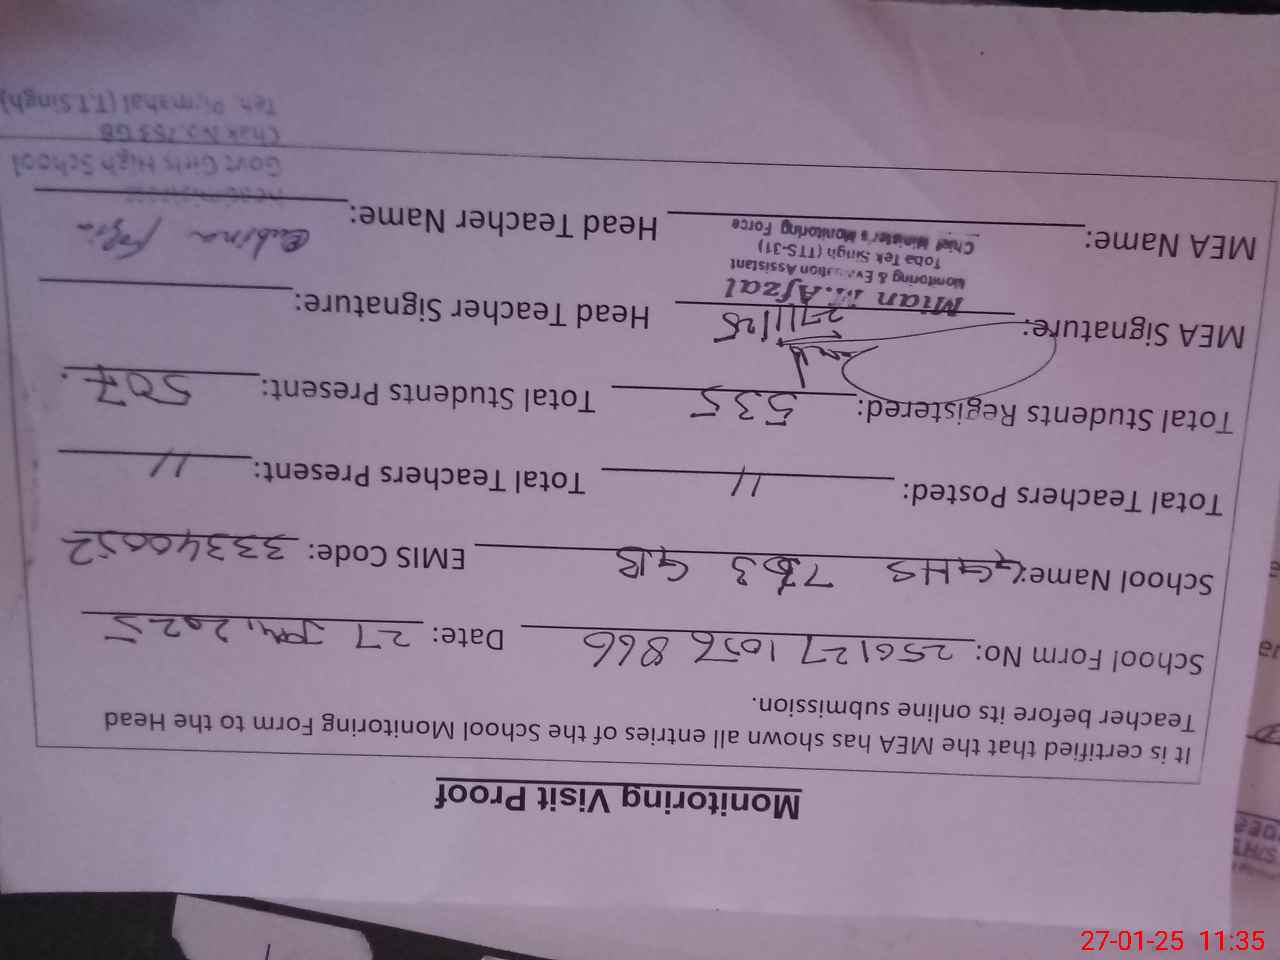 Monitoring Visit Proof
It is certified that the MEA has shown all entries of the School Monitoring Form to the Head
Teacher before its online submission.
School Form No: 256127 1056 866 Date: 27 Jan, 2025
School Name: GGHS 763 GB EMIS Code: 33340052
Total Teachers Posted: 11 Total Teachers Present: 11
Total Students Registered: 535 Total Students Present: 507
MEA Signature: 27/1/25 Head Teacher Signature:
Mian M. Afzal
Monitoring & Evaluation Assistant
Toba Tek Singh (TTS-31)
Chief Minister's Monitoring Force
MEA Name: Head Teacher Name:
Govt Girls High School
Chak No. GB
Teh. Pirmahal (T.T.Singh)
27-01-25 11:35